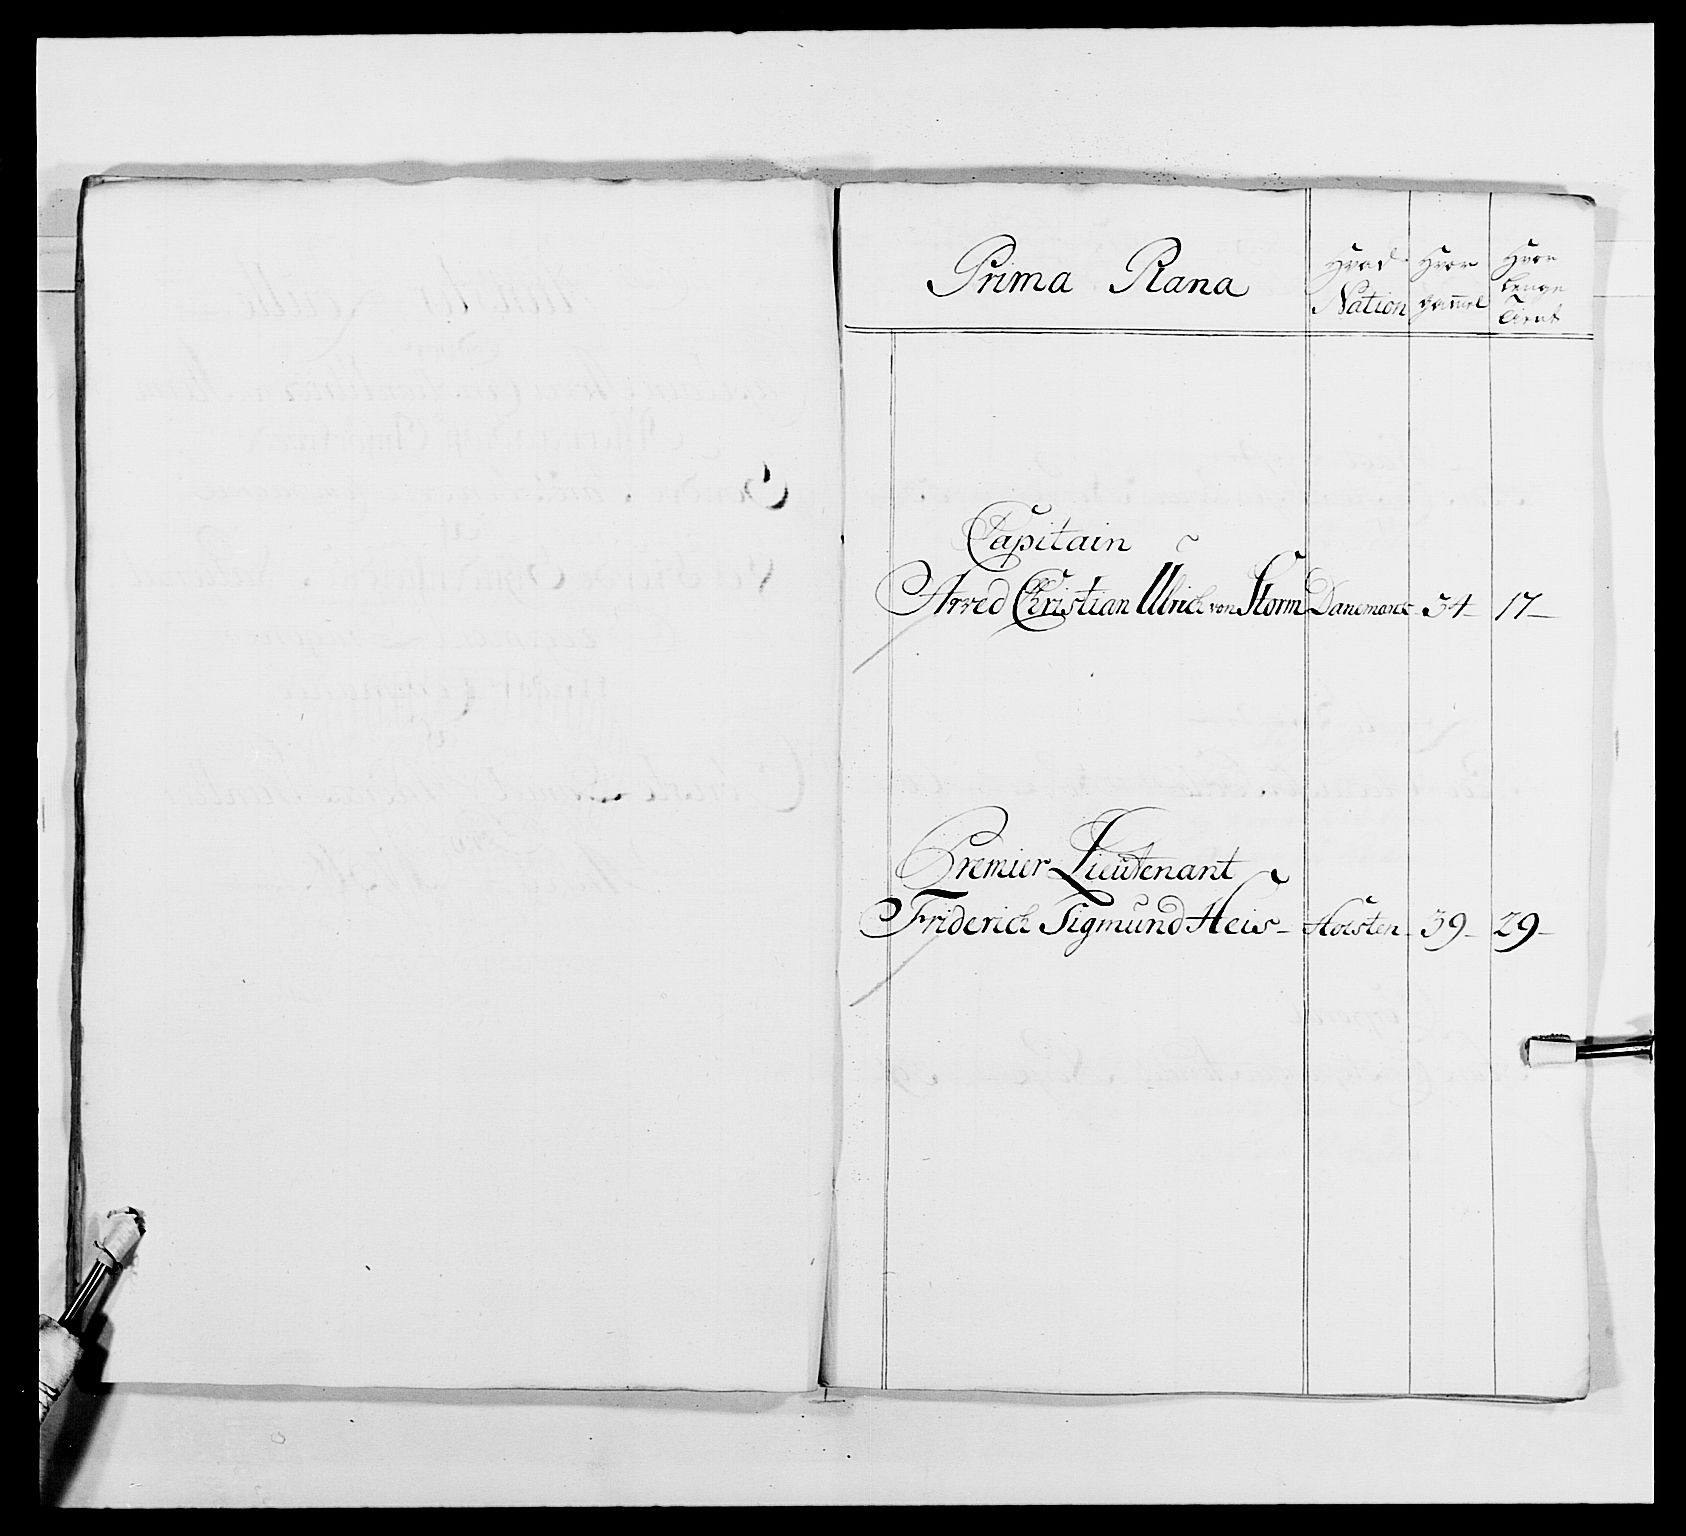 Prima Plana
Hvad Nation
Hvor gammel
Hvor lenge tient
Capitain
Arred Christian Ulrich von Storm Danemarck 34 17
Premier Lieutenant
Friderich Sigmund Heis Holsten 39 29